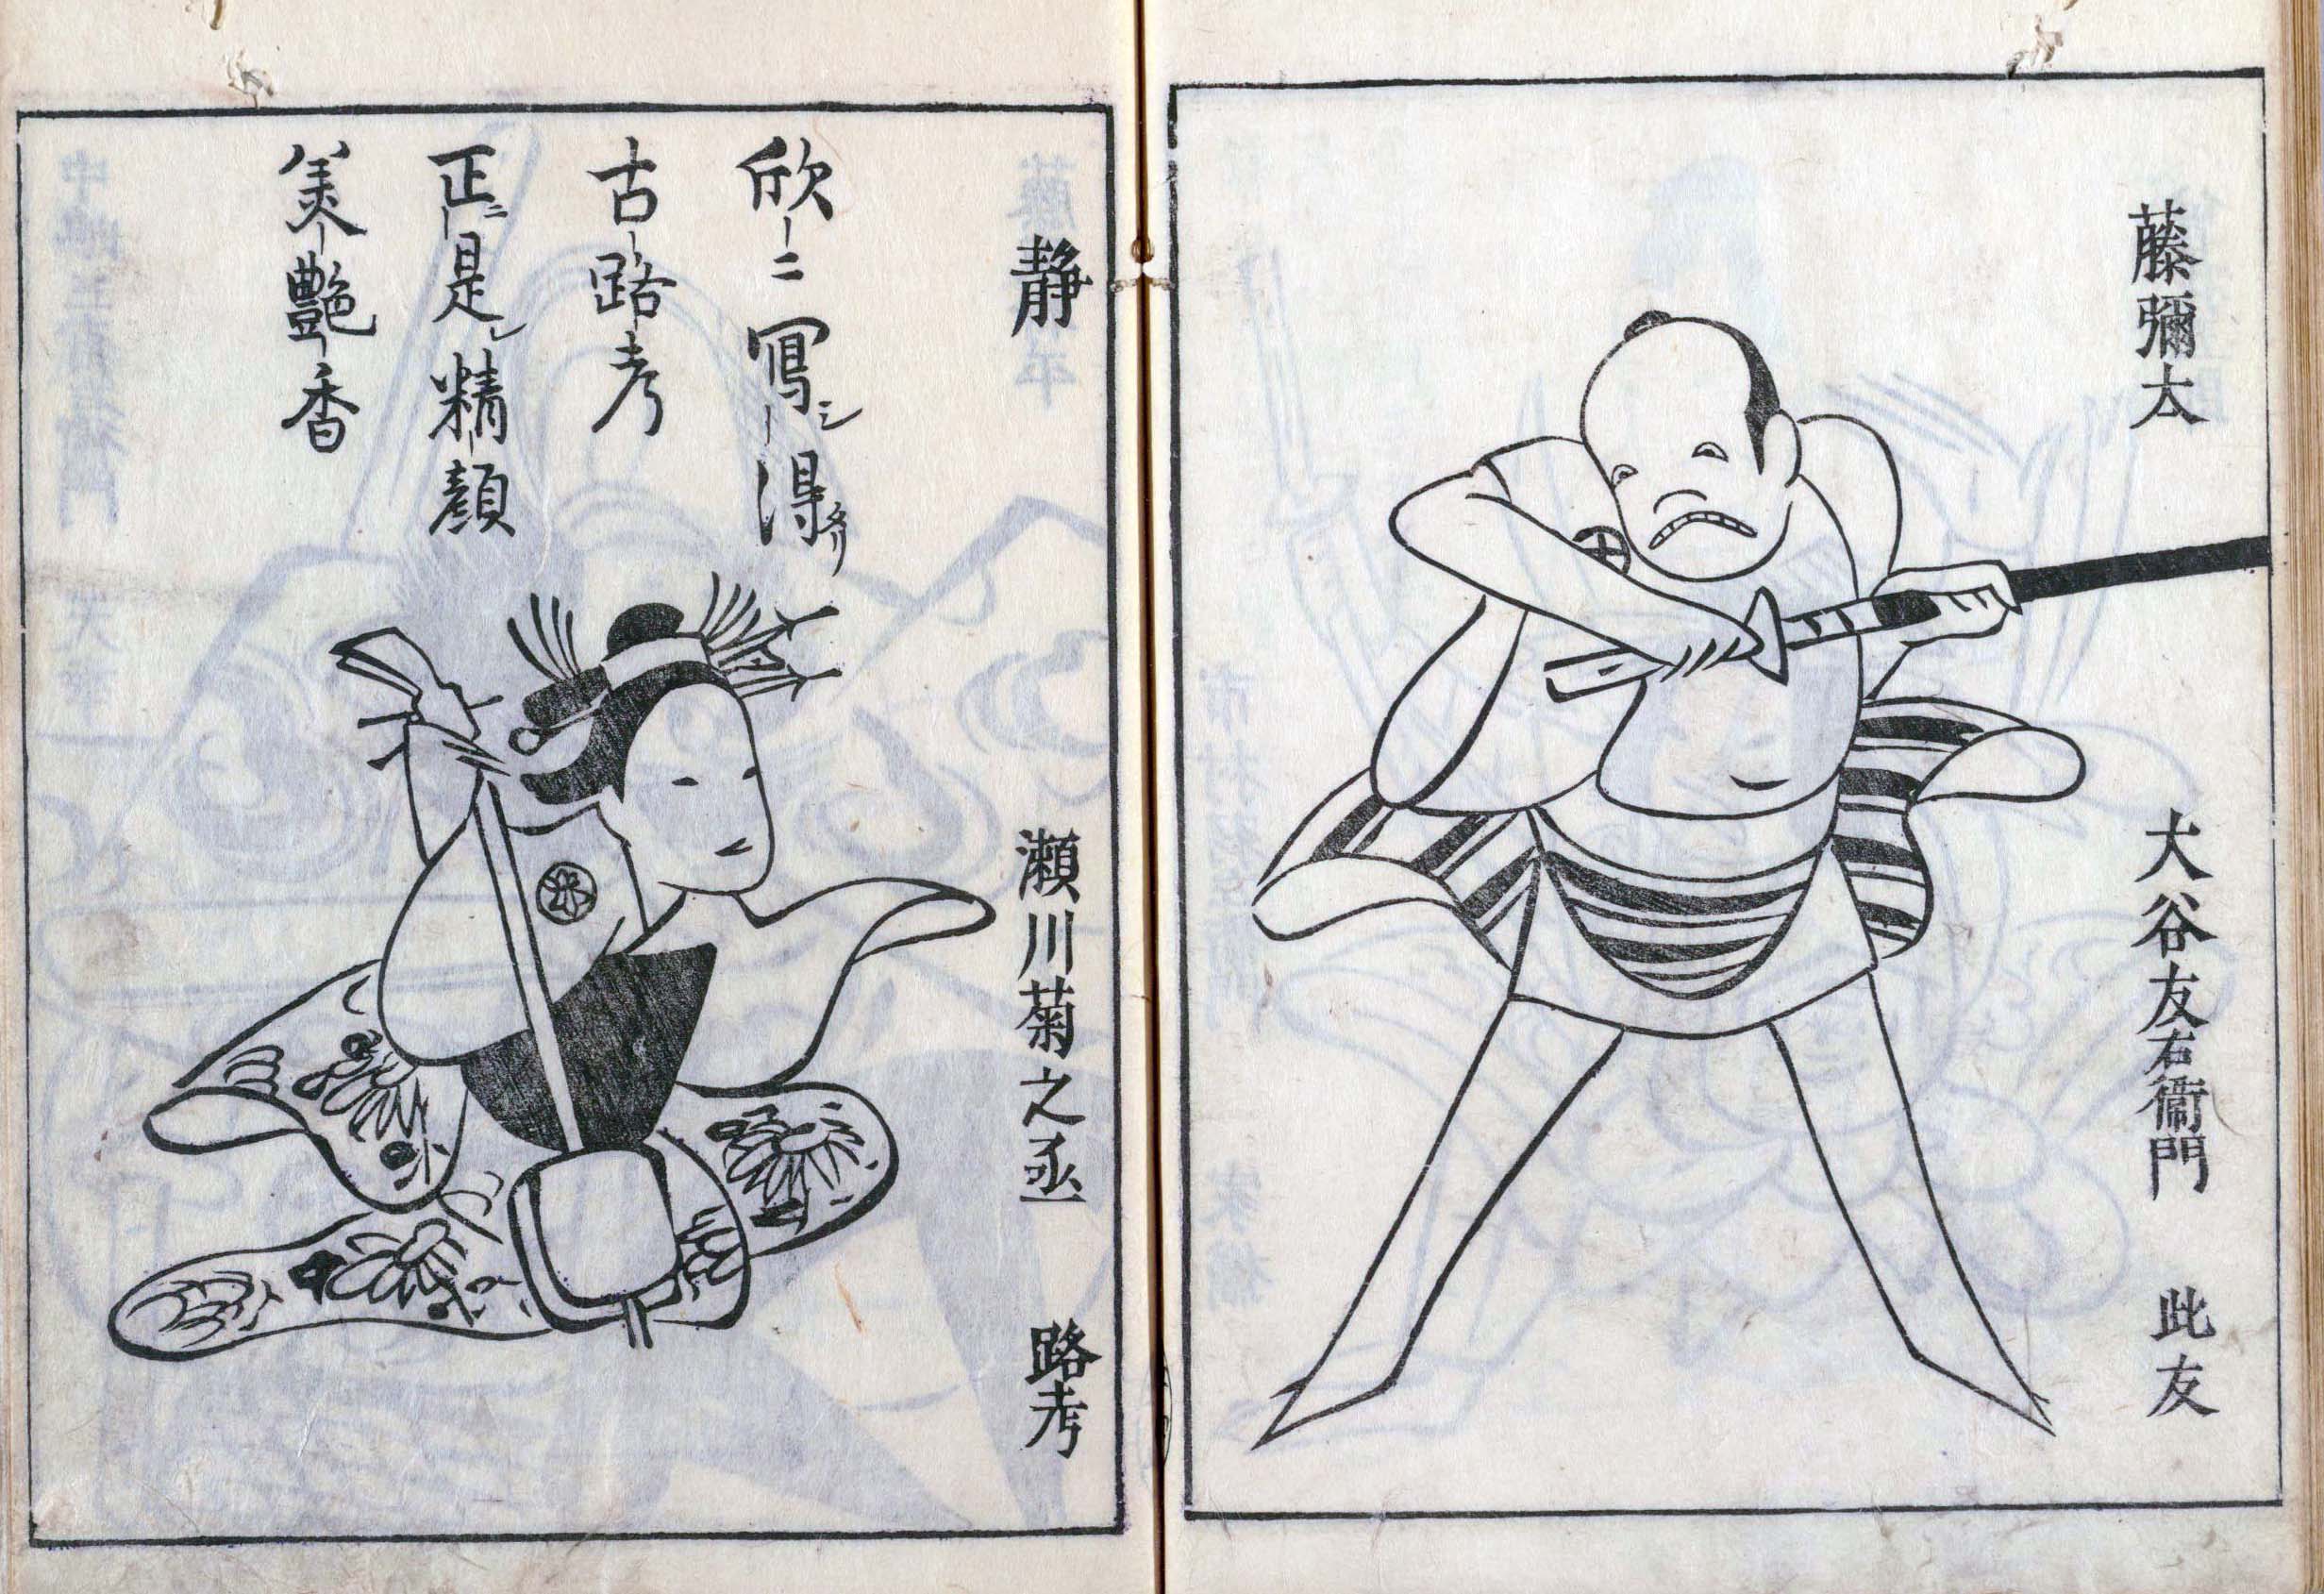 藤彌太
大谷友右衞門
此友
静
瀬川菊之丞
路考
欣ニ寫シ得タリ
古路考
正ニ是レ精顔
美艷香